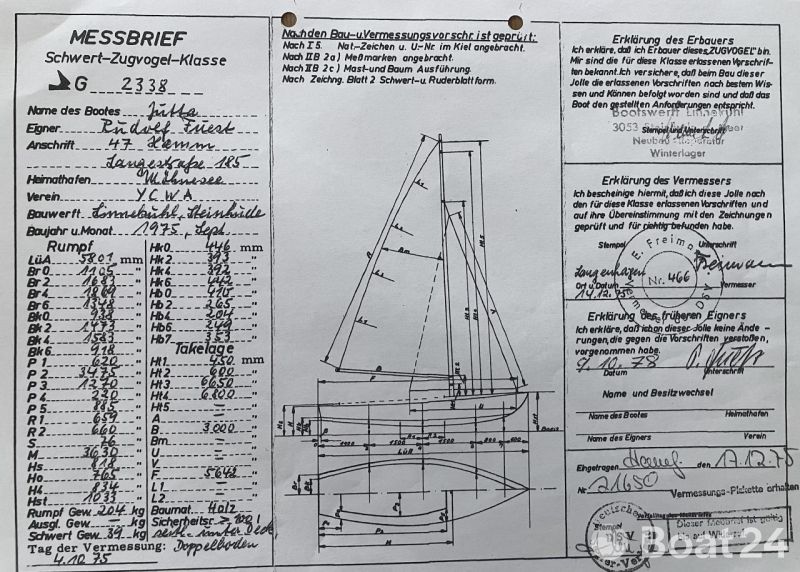 MESSBRIEF
Schwert-Zugvogel-Klasse
G 2338
Name des Bootes Jutta
Eigner Rudolf Füest
Anschrift 47 Hamm
Langestraße 185
Heimathafen Möhnesee
Verein YCWA
Bauwerft Linnekühl, Steinhude
Baujahr u. Monat 1975, Sept
Rumpf
LüA 5801 mm
Br0 1105 "
Br2 1687 "
Br4 1869 "
Br6 1348 "
Bk0 938 "
Bk2 1473 "
Bk4 1583 "
Bk6 918 "
P1 620 "
P2 3475 "
P3 1270 "
P4 220 "
P5 885 "
R1 659 "
R2 660 "
S 76 "
M 3630 "
Hs 818 "
Ho 765 "
H4 834 "
Hst 1033 "
Rumpf Gew. 204 kg
Ausgl. Gew. – kg
Schwert Gew. 39 kg
Tag der Vermessung:
4.10.75
Hk0 446 mm
Hk2 393 "
Hk4 392 "
Hk6 442 "
Hb0 410 "
Hb2 265 "
Hb4 204 "
Hb6 249 "
Hb7 353 "
Takelage
Ht1 450 mm
Ht2 600 "
Ht3 6650 "
Ht4 6800 "
Ht5 – "
A – "
B 3000 "
Bm – "
U – "
V – "
F 5642 "
L1 – "
L2 – "
Baumat. Holz
Sicherheitsr. > 100 l
Doppelboden
Nach den Bau- u. Vermessungsvorschr. ist geprüft:
Nach I 5. Nat.-Zeichen u. U.-Nr. im Kiel angebracht.
Nach II B 2a) Meßmarken angebracht.
Nach II B 2c) Mast- und Baum Ausführung.
Nach Zeichng. Blatt 2 Schwert- u. Ruderblattform.
Basis
LüA
1400
1500
1500
800
600
Erklärung des Erbauers
Ich erkläre, daß ich Erbauer dieses „ZUGVOGEL" bin.
Mir sind die für diese Klasse erlassenen Vorschrif-
ten bekannt. Ich versichere, daß beim Bau dieser
Jolle die erlassenen Vorschriften nach bestem Wis-
sen und Können befolgt worden sind und daß das
Boot den gestellten Anforderungen entspricht.
Bootswerft Linnekühl
3053
Stempel und Unterschrift
Neubau
Winterlager
Erklärung des Vermessers
Ich bescheinige hiermit, daß diese Jolle nach
den für diese Klasse erlassenen Vorschriften und
auf ihre Übereinstimmung mit den Zeichnungen
geprüft und für richtig befunden habe.
Stempel Unterschrift
E. Freimann
Nr. 466
Vermesser DSV
Langenhagen Freimann
Ort u. Datum Vermesser
14.12.75
Erklärung des früheren Eigners
Ich erkläre, daß ich an dieser Jolle keine Ände-
rungen, die gegen die Vorschriften verstoßen,
vorgenommen habe.
9.10.78
Datum Unterschrift
Name und Besitzwechsel
Name des Bootes Heimathafen
Name des Eigners Verein
Eingetragen den 17.12.75
Nr. 21650
Vermessungs-Plakette erhalten
Stempel
DSV
Dieser Meßbrief ist gültig
bis auf Widerruf
Boat24